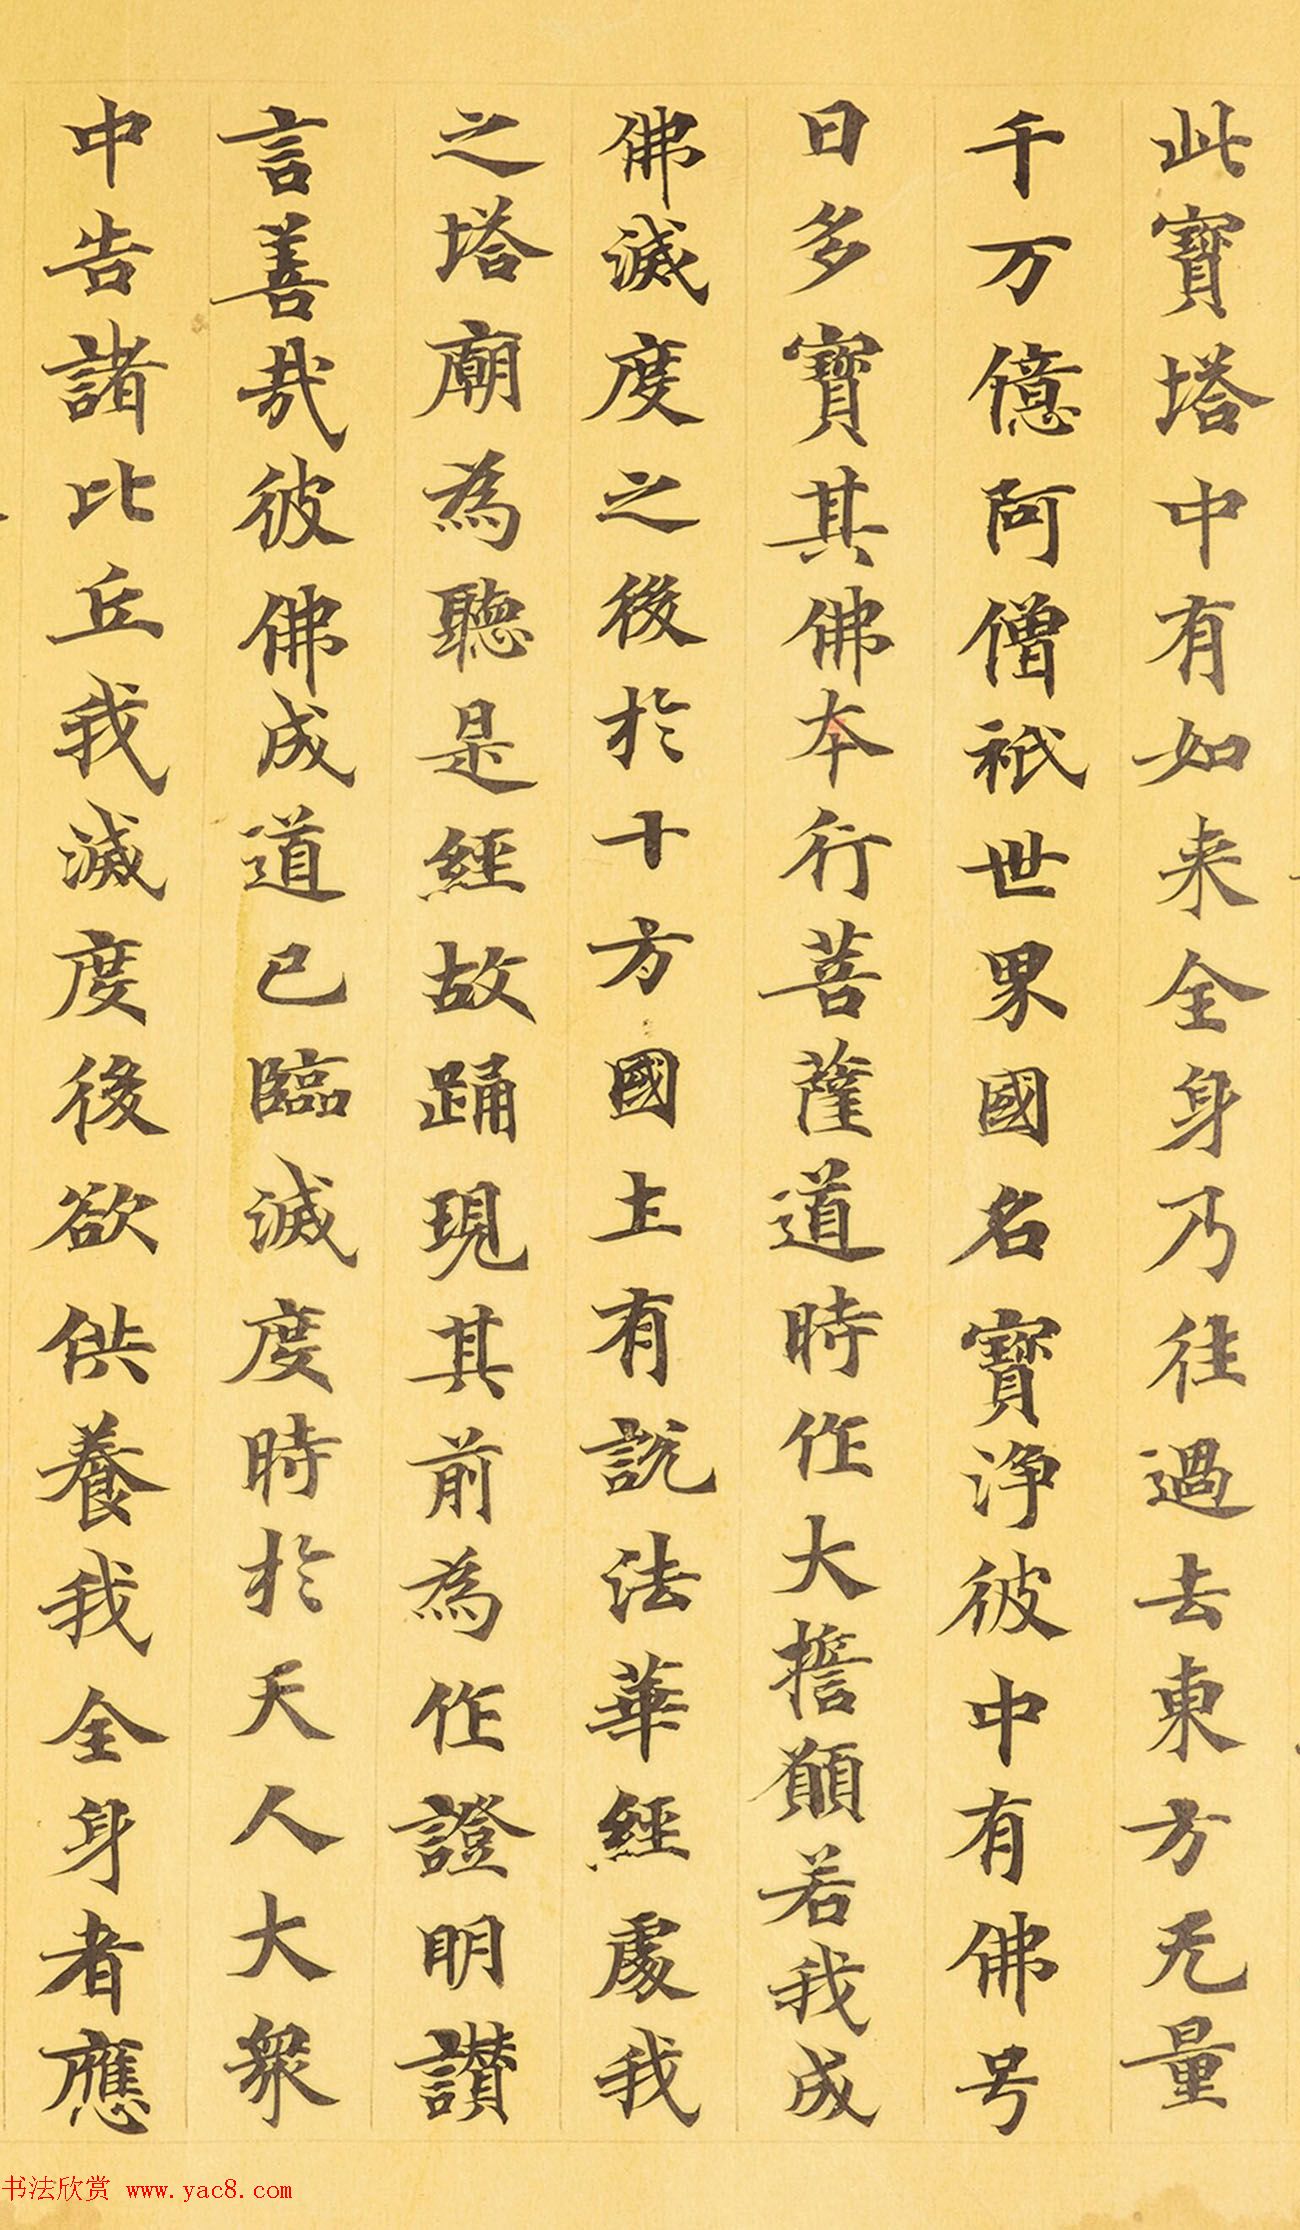 此寶塔中有如来全身乃往過去東方无量
千万億阿僧祇世界國名寶浄彼中有佛号
曰多寶其佛本行菩薩道時作大擔願若我成
佛滅度之後於十方國土有說法華經處我
之塔廟為聽是經故踊現其前為作證明讃
言善哉彼佛成道已臨滅度時於天人大衆
中告諸比丘我滅度後欲供養我全身者應
书法欣赏 www.yac8.com